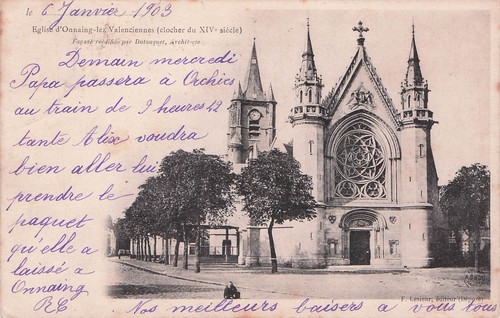 le 6 Janvier 1903
Eglise d'Onnaing-lez Valenciennes (clocher du XIVe siècle)
Façade réédifiée par Dutouquet, Architecte
Demain mercredi
Papa passera à Orchies
au train de 9 heures 42
tante Alix voudra
bien aller lui
prendre le
paquet
qu'elle a
laissé à
Onnaing
Nos meilleurs baisers a vous tous
F. Lesieur, Éditeur